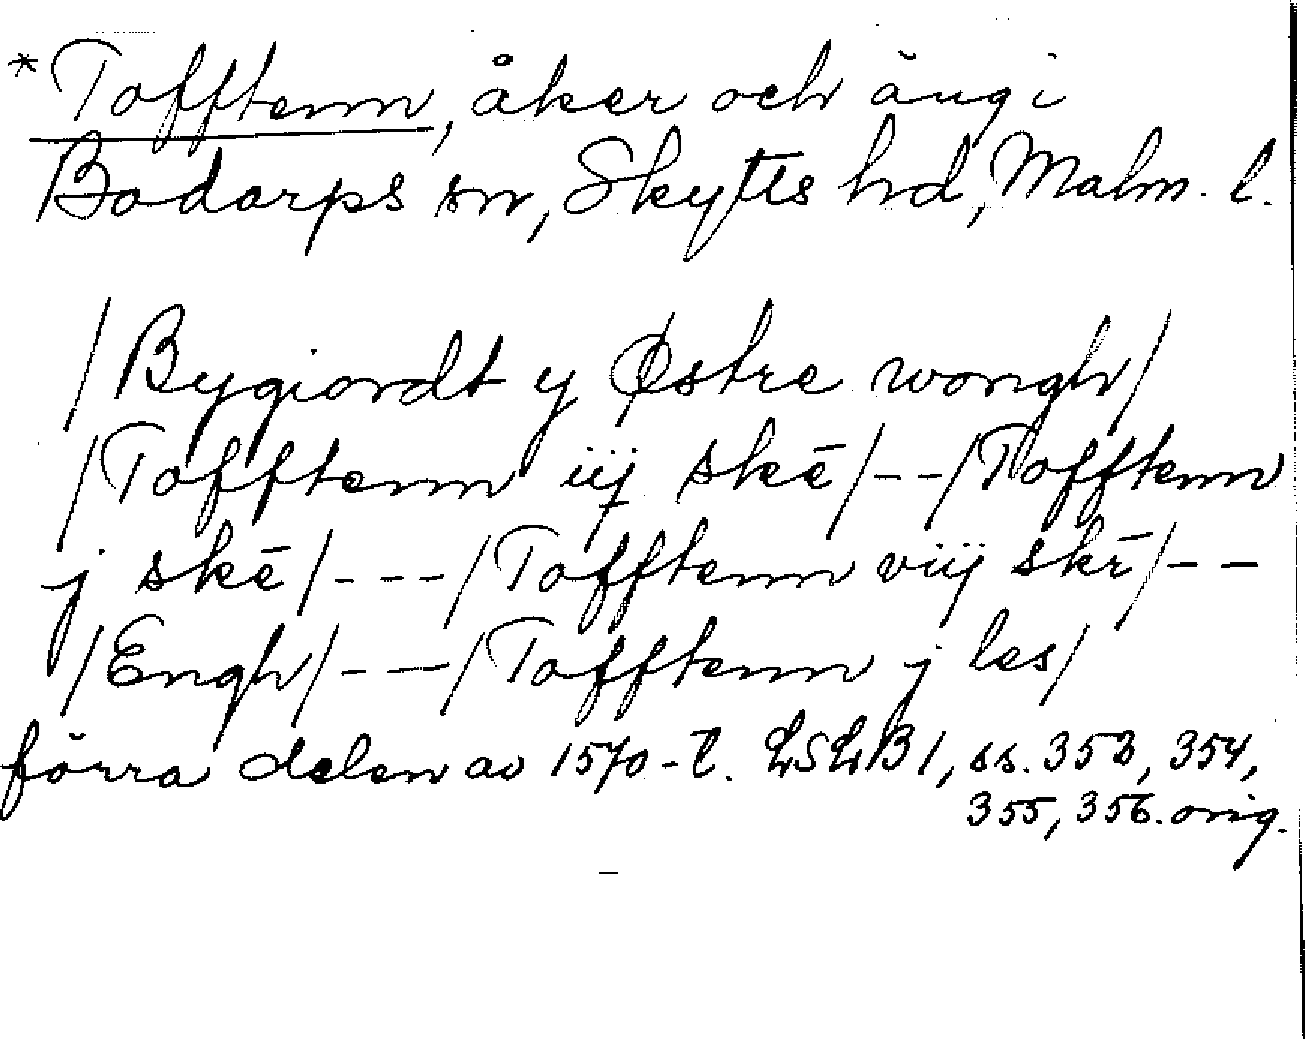 *Tofftenn, åker och äng i
Bodarps sn, Skytts hd, Malm. l.
/Bygiordt y Østre wongh/
/Tofftenn iij skē/--/Tofftenn
j skē/---/Tofftenn viij skē/--
/Engh/---/Tofftenn j les/
förra delen av 1570-t. LSLB 1, ss. 353, 354,
355, 356. orig.